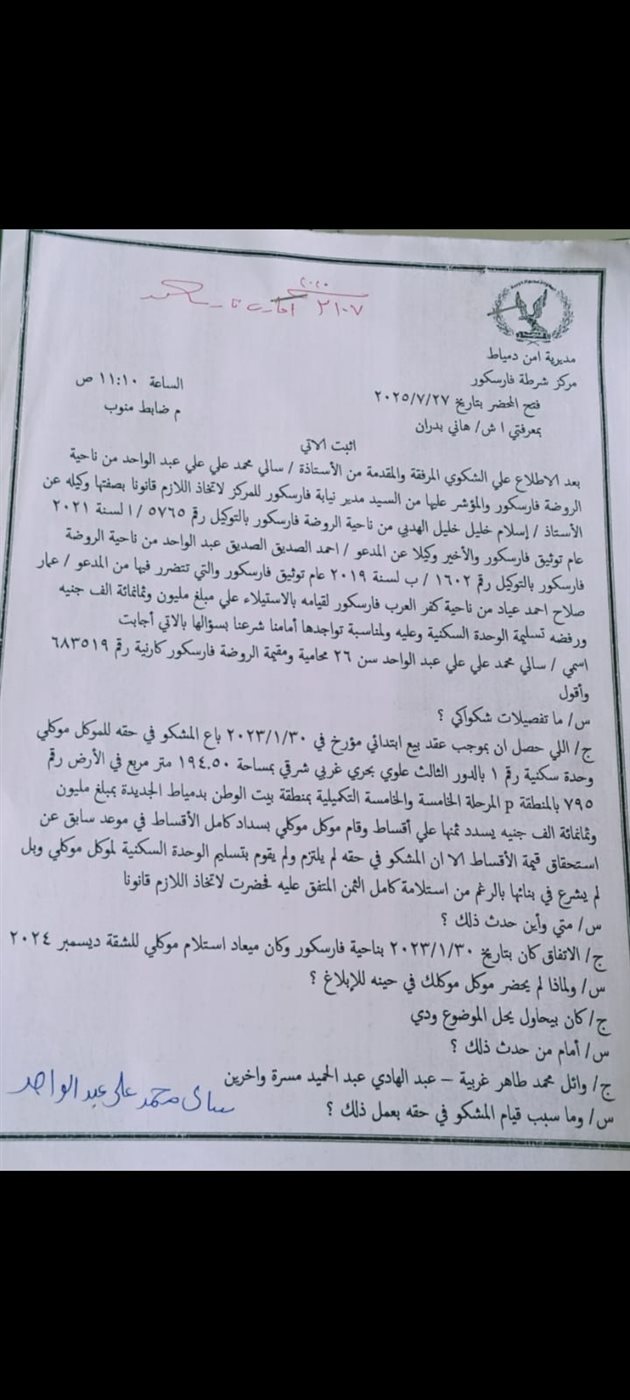 ٢٠٢٥
٢١٠٧
مديرية امن دمياط
مركز شرطة فارسكور
الساعة ١١:١٠ ص
فتح المحضر بتاريخ ٢٠٢٥/٧/٢٧
م ضابط منوب
بمعرفتي ا ش/ هاني بدران
اثبت الاتي
بعد الاطلاع علي الشكوي المرفقة والمقدمة من الأستاذة / سالي محمد علي علي عبد الواحد من ناحية
الروضة فارسكور والمؤشر عليها من السيد مدير نيابة فارسكور للمركز لاتخاذ اللازم قانونا بصفتها وكيله عن
الأستاذ / إسلام خليل خليل الهدبي من ناحية الروضة فارسكور بالتوكيل رقم ٥٧٦٥ / ا لسنة ٢٠٢١
عام توثيق فارسكور والأخير وكيلا عن المدعو / احمد الصديق الصديق عبد الواحد من ناحية الروضة
فارسكور بالتوكيل رقم ١٦٠٢ / ب لسنة ٢٠١٩ عام توثيق فارسكور والتي تتضرر فيها من المدعو / عمار
صلاح احمد عياد من ناحية كفر العرب فارسكور لقيامه بالاستيلاء علي مبلغ مليون وثمانمائة الف جنيه
ورفضه تسليمة الوحدة السكنية وعليه ولمناسبة تواجدها أمامنا شرعنا بسؤالها بالاتي أجابت
اسمي / سالي محمد علي علي عبد الواحد سن ٢٦ محامية ومقيمة الروضة فارسكور كارنية رقم ٦٨٣٥١٩
وأقول
س/ ما تفصيلات شكواكي ؟
ج/ اللي حصل ان بموجب عقد بيع ابتدائي مؤرخ في ٢٠٢٣/١/٣٠ باع المشكو في حقه للموكل موكلي
وحدة سكنية رقم ١ بالدور الثالث علوي بحري غربي شرقي بمساحة ١٩٤.٥٠ متر مربع في الأرض رقم
٧٩٥ بالمنطقة p المرحلة الخامسة والخامسة التكميلية بمنطقة بيت الوطن بدمياط الجديدة بمبلغ مليون
وثمانمائة الف جنيه يسدد ثمنها علي أقساط وقام موكل موكلي بسداد كامل الأقساط في موعد سابق عن
استحقاق قيمة الأقساط الا ان المشكو في حقه لم يلتزم ولم يقوم بتسليم الوحدة السكنية لموكل موكلي وبل
لم يشرع في بنائها بالرغم من استلامة كامل الثمن المتفق عليه فحضرت لاتخاذ اللازم قانونا
س/ متي وأين حدث ذلك ؟
ج/ الاتفاق كان بتاريخ ٢٠٢٣/١/٣٠ بناحية فارسكور وكان ميعاد استلام موكلي للشقة ديسمبر ٢٠٢٤
س/ ولماذا لم يحضر موكل موكلك في حينه للإبلاغ ؟
ج/ كان بيحاول يحل الموضوع ودي
س/ أمام من حدث ذلك ؟
ج/ وائل محمد طاهر غربية – عبد الهادي عبد الحميد مسرة واخرين
س/ وما سبب قيام المشكو في حقه بعمل ذلك ؟
سالى محمد على عبد الواحد